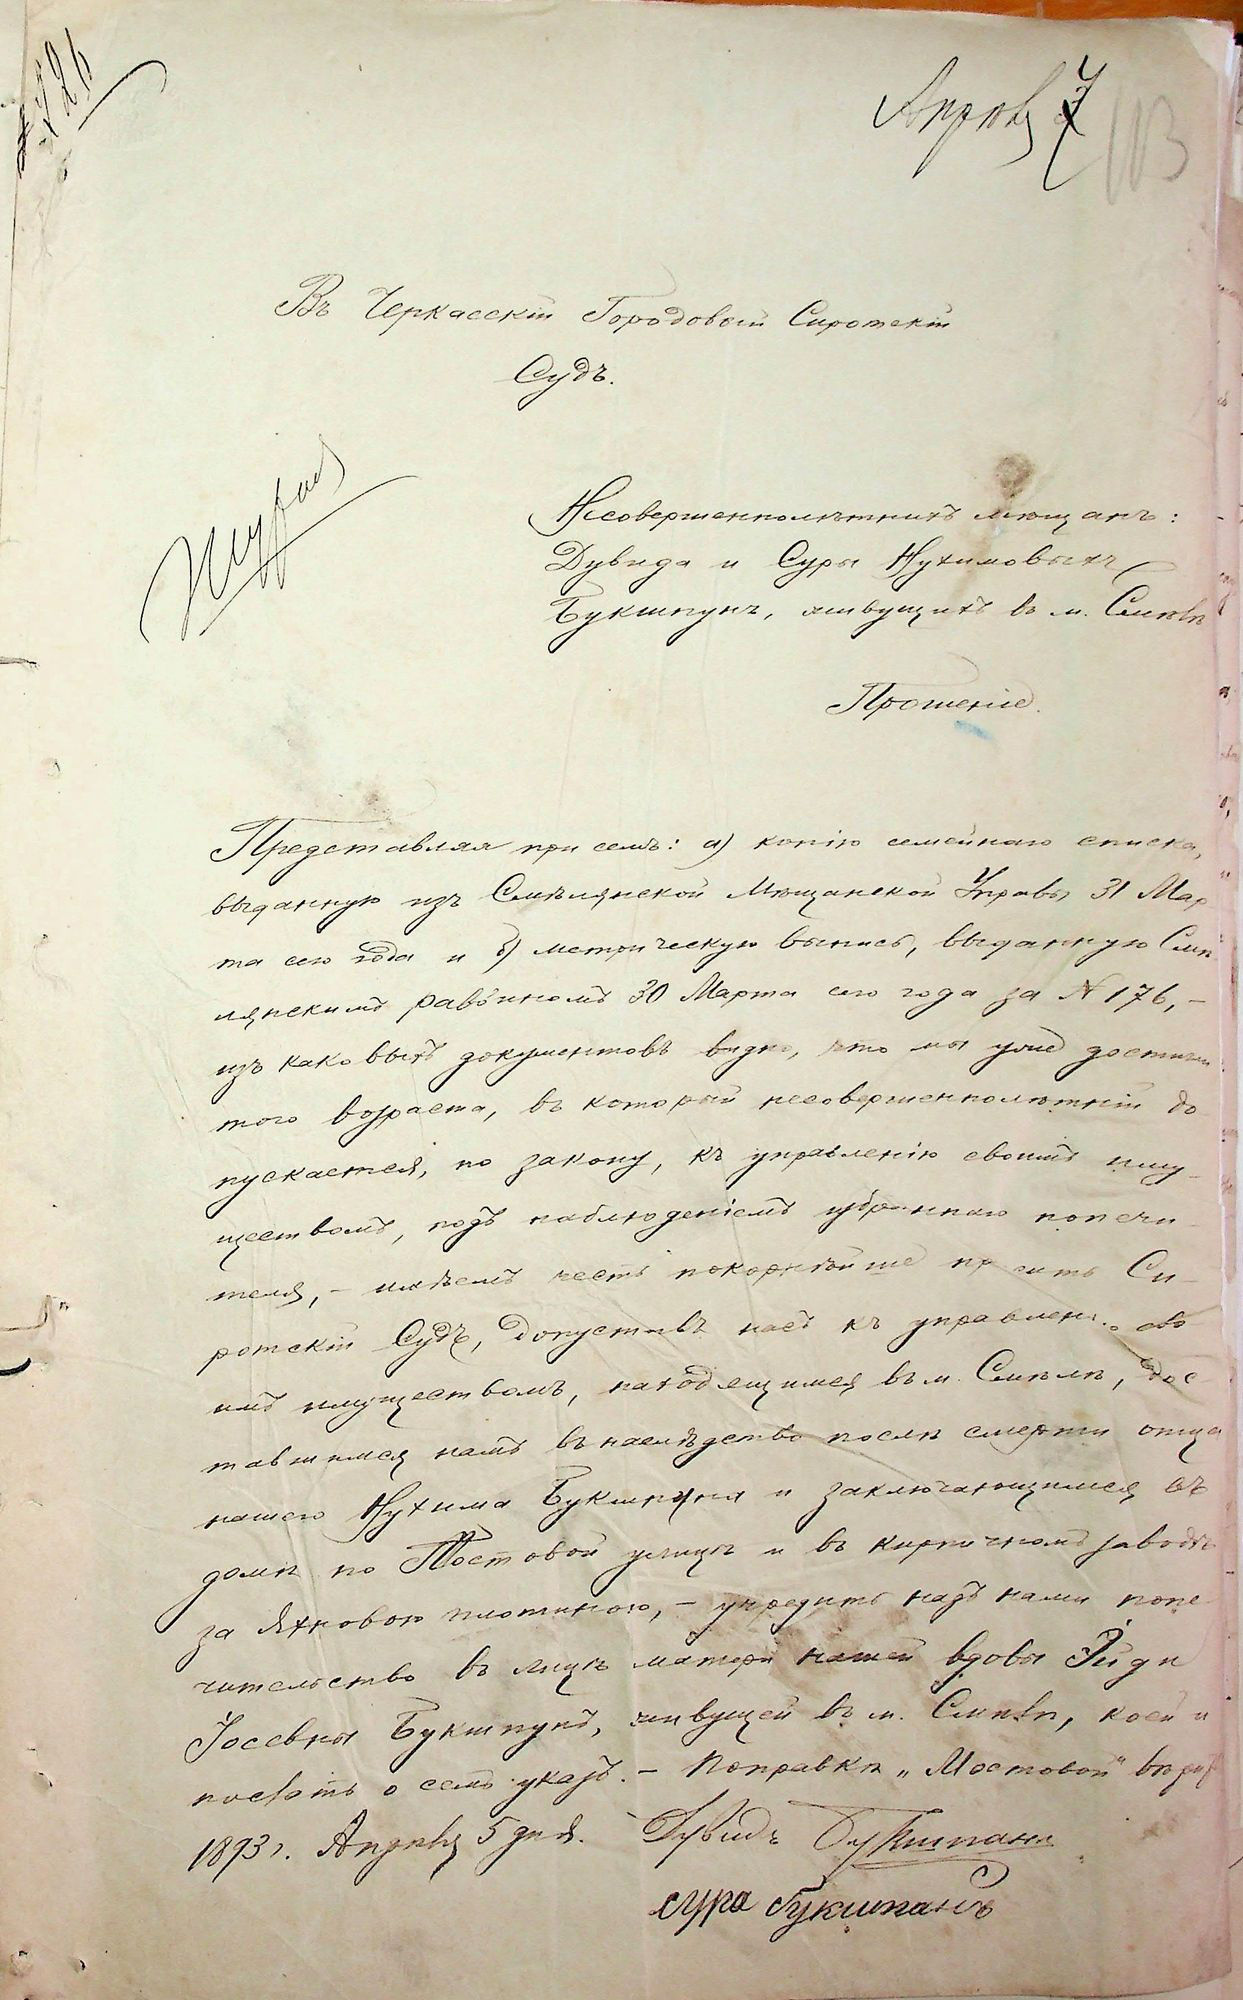 Апрѣля 7
103
126
Въ Черкасскій Городовой Сиротскій
Судъ.
Несовершеннолѣтнихъ мѣщанъ:
Дувида и Суры Нухимовыхъ
Букшпунъ, живущихъ въ м. Смѣлѣ
Прошеніе.
Представляя при семъ: а) копію семейнаго списка,
выданную изъ Смѣлянской Мѣщанской Управы 31 Мар-
та сего года и б) метрическую выпись, выданную Смѣ-
лянскимъ раввиномъ 30 Марта сего года за № 176, –
изъ каковыхъ документовъ видно, что мы уже достигли
того возраста, въ который несовершеннолѣтній до-
пускается, по закону, къ управленію своимъ иму-
ществомъ, подъ наблюденіемъ избраннаго попечи-
теля, – имѣемъ честь покорнѣйше просить Си-
ротскій Судъ, допустивъ насъ къ управленію сво-
имъ имуществомъ, находящимся въ м. Смѣлѣ, дос-
тавшимся намъ въ наслѣдство послѣ смерти отца
нашего Нухима Букшпуна и заключающимся въ
домѣ по Мостовой улицѣ и въ кирпичномъ заводѣ
за Яхновою плотиною, – учредить надъ нами попе-
чительство въ лицѣ матери нашей вдовы Эйди
Іосевны Букшпунъ, живущей въ м. Смѣлѣ, коей и
послать о семъ указъ. – Поправкѣ „Мостовой" вѣрить
1893 г. Апрѣля 5 дня. Дувидъ Букшпанъ
Сура Букшпанъ